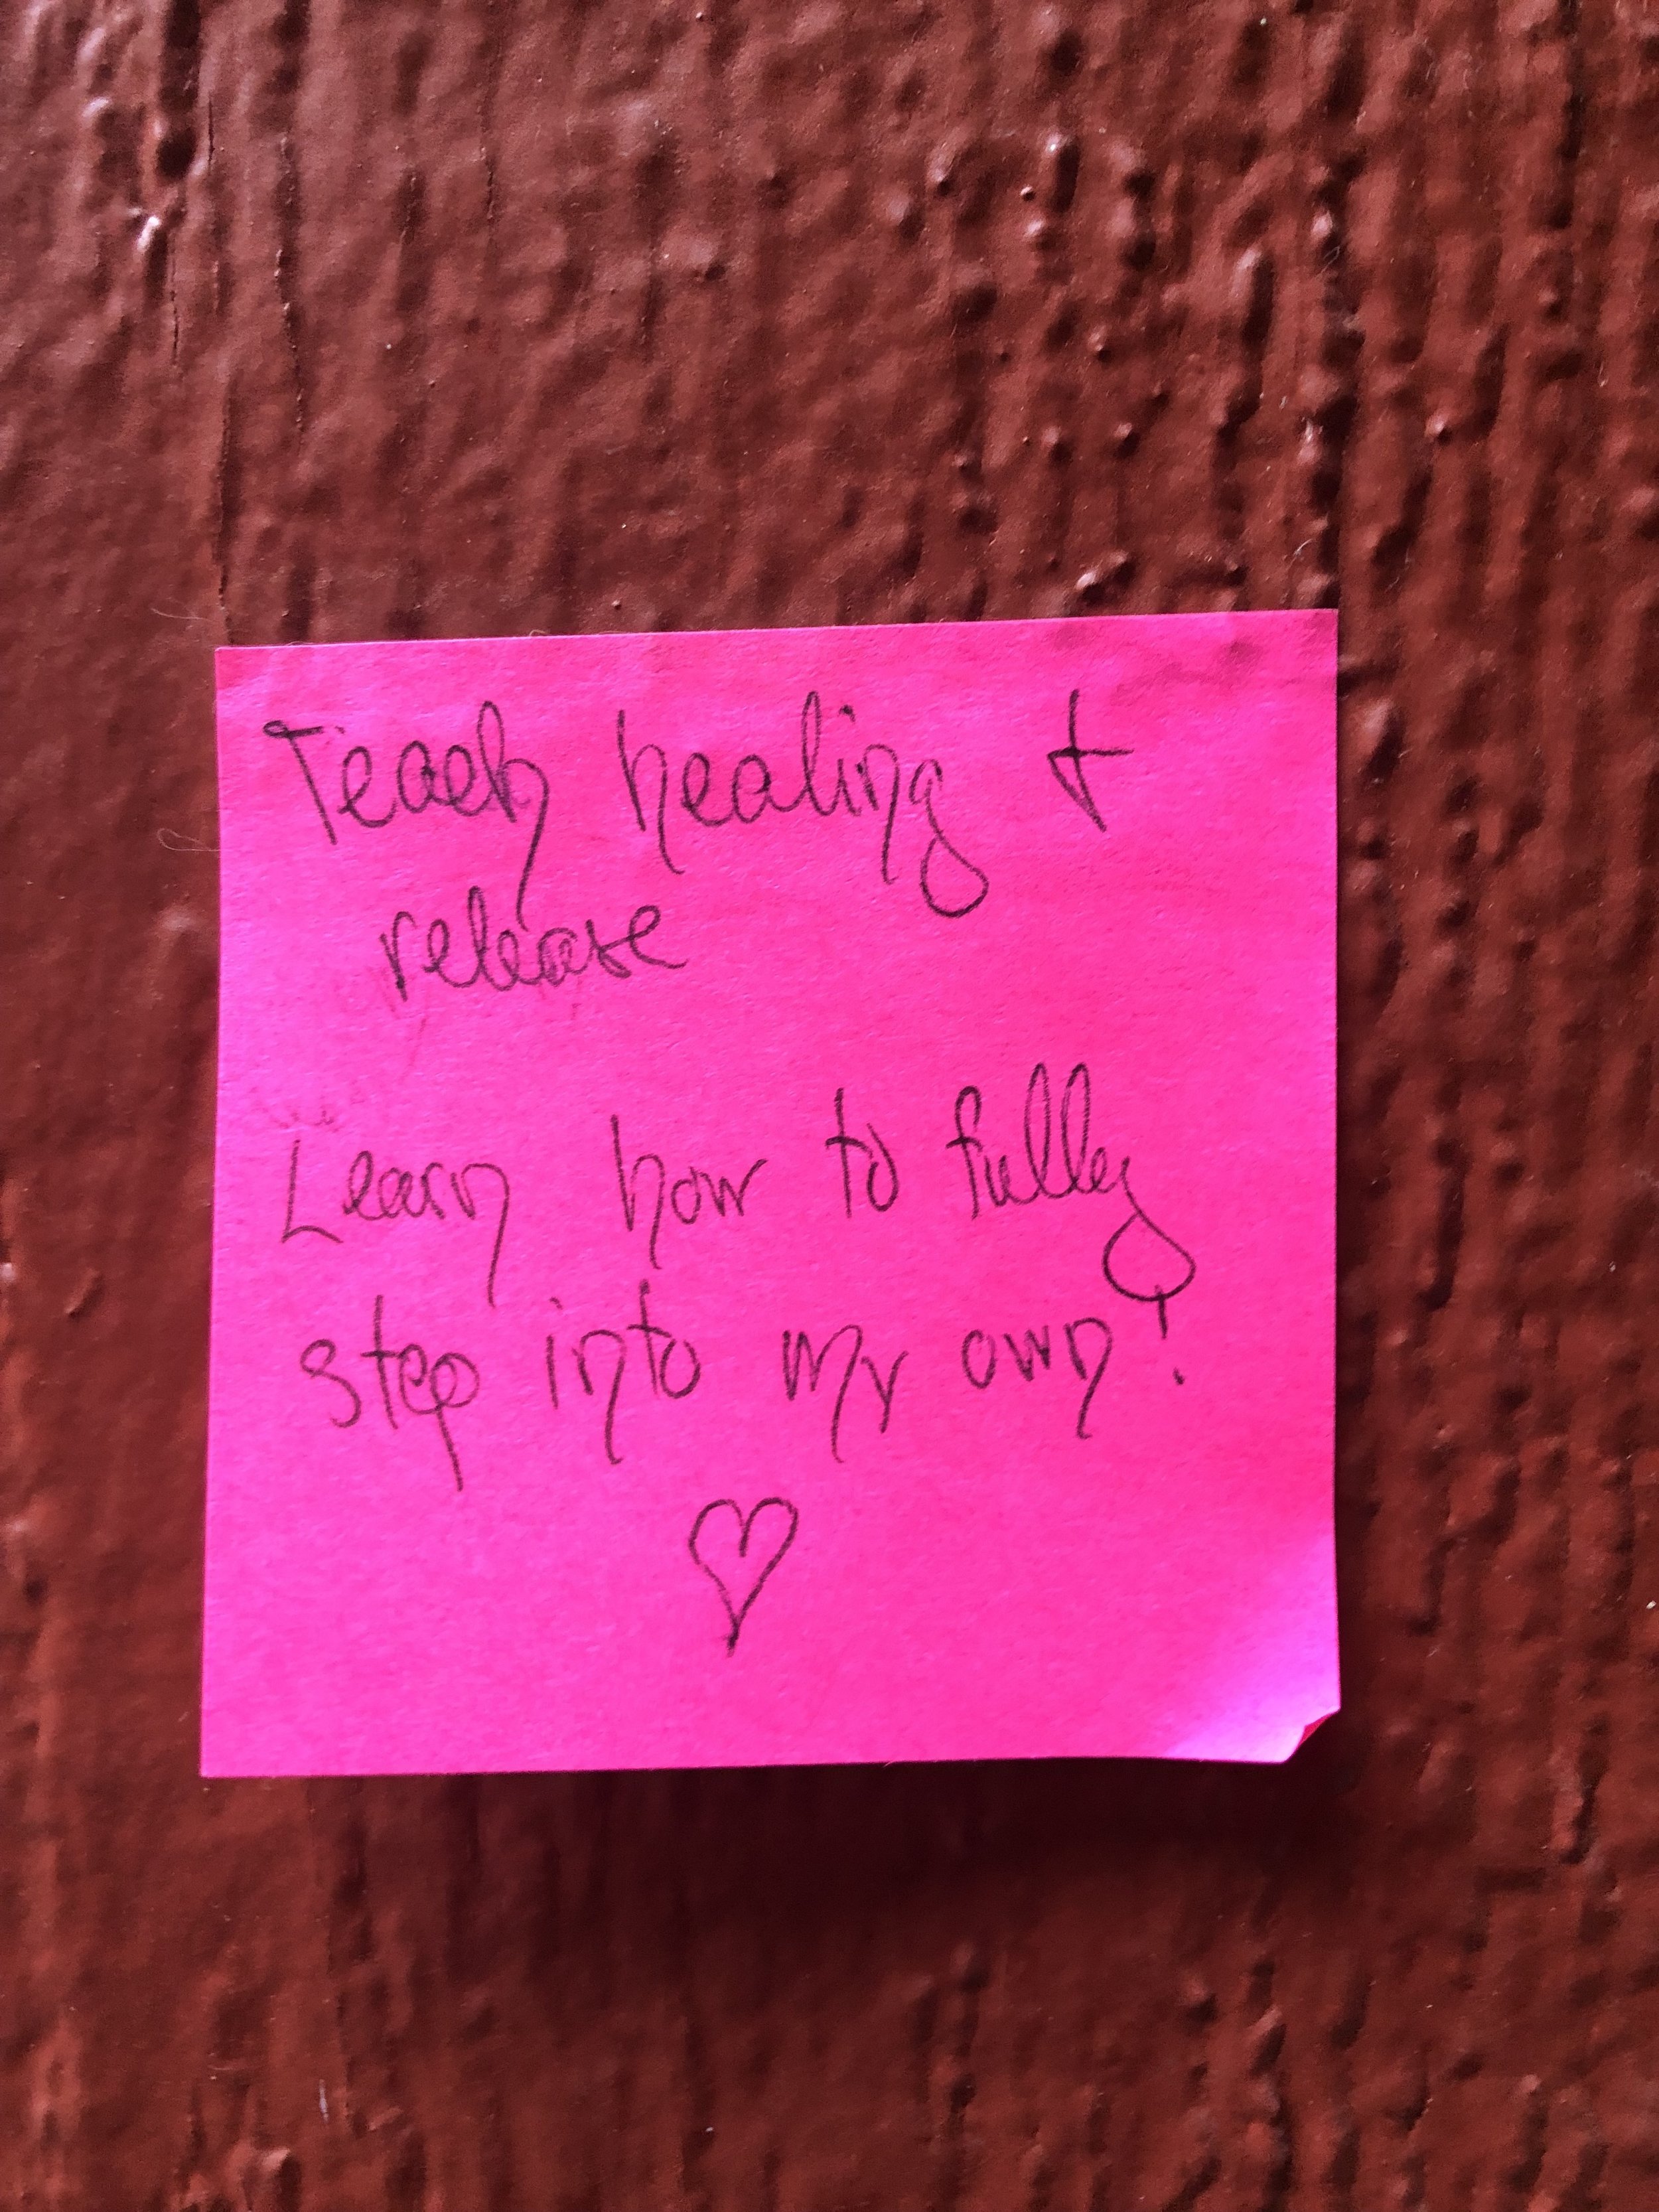 Teach healing +
release
Learn how to fully
step into my own!
♡